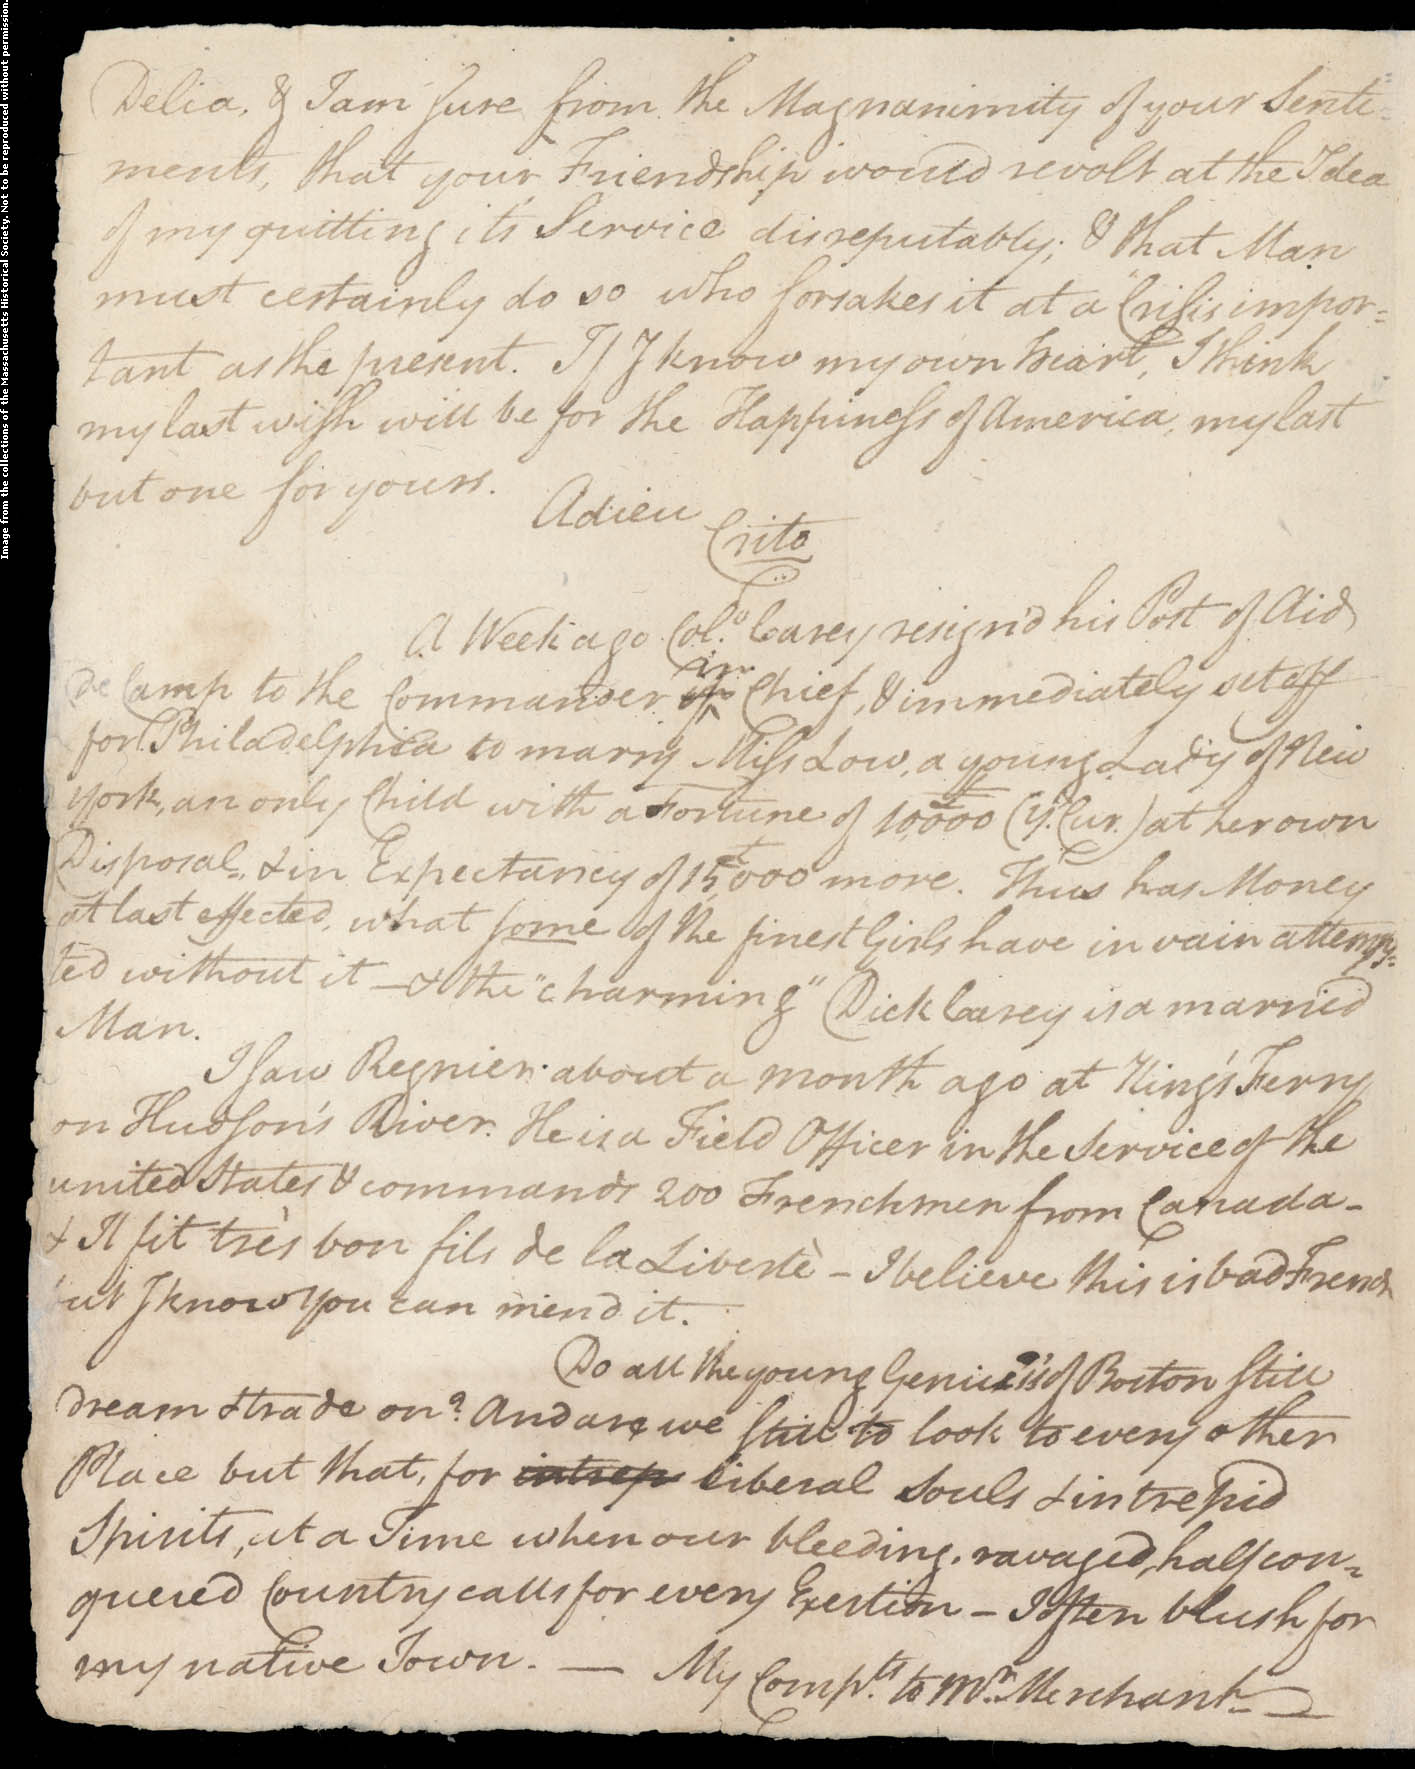 Delia. & I am sure from the Magnanimity of your Senti-
ments, that your Friendship would revolt at the Idea
of my quitting it's Service disreputably; & that Man
must certainly do so who forsakes it at a Crisis impor=
tant as the present. If I know my own Heart, I think
my last wish will be for the Happiness of America, my last
but one for yours.
Adieu
Crito
A Week ago Col.º Carey resign'd his Post of Aid
De Camp to the Commander in Chief, & immediately set off
for Philadelphia to marry Miss Low, a young Lady of New
York, an only Child with a Fortune of 10000 (Y. Cur.) at her own
Disposal, & in Expectancy of 15,000 more. Thus has Money
at last effected, what some of the finest Girls have in vain attemp=
ted without it — & the "charming" Dick Carey is a married
Man.
I saw Regnier about a month ago at King's Ferry
on Hudson's River. He is a Field Officer in the Service of the
united States & commands 200 Frenchmen from Canada -
& Il fit très bon fils de la Libertè - I believe this is bad French
but I know you can mend it.
Do all the young Genius's of Boston still
dream & trade on? And are we still to look to every other
Place but that, for intrep liberal Souls & intrepid
Spirits, at a Time when our bleeding, ravaged, half con=
quered Country calls for every Exertion - I often blush for
my native Town. — My Comp.ts to Mr. Merchant —
Image from the collections of the Massachusetts Historical Society. Not to be reproduced without permission.